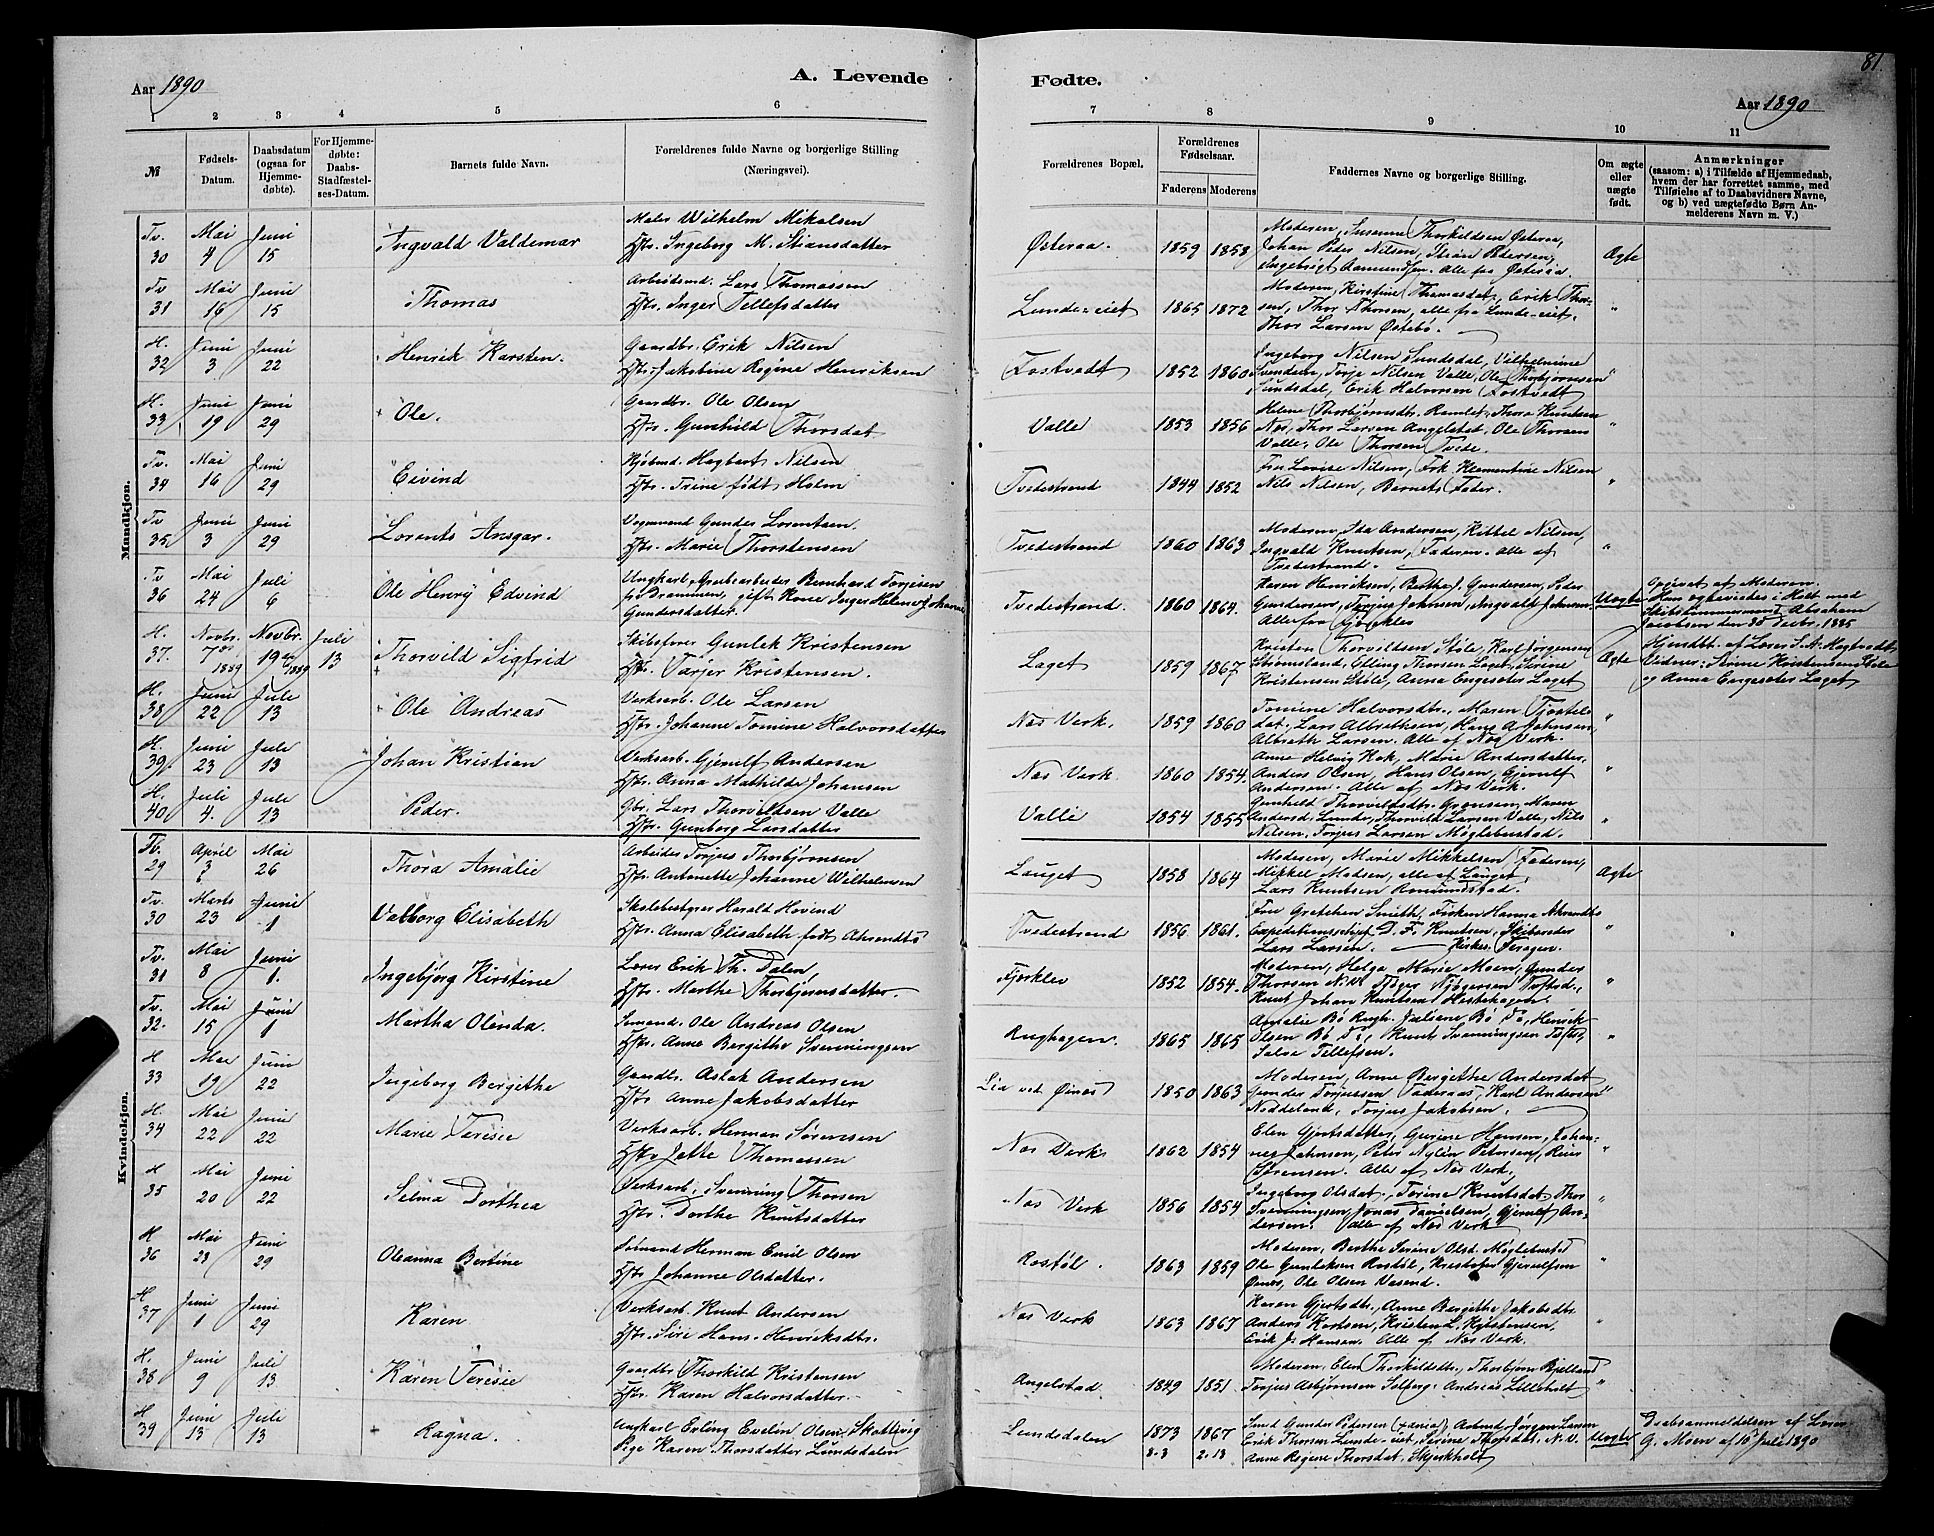 81.
Aar 1890
A. Levende
Fødte.
Aar 1890
1 2 3 4 5 6 7 8 9 10 11
№
Fødsels-Datum.
Daabsdatum (ogsaa for Hjemmedøbte).
For Hjemmedøbte: Daabs-Stadfæstelses-Datum.
Barnets fulde Navn.
Forældrenes fulde Navne og borgerlige Stilling (Næringsvei).
Forældrenes Bopæl.
Forældrenes Fødselsaar.
Faderens Moderens
Faddernes Navne og borgerlige Stilling.
Om ægte eller uægte født.
Anmærkninger
(saasom: a) i Tilfælde af Hjemmedaab, hvem der har forrettet samme, med Tilføielse af to Daabsvidners Navne, og b) ved uægtefødte Børn Anmelderens Navn m. V.)
Mandkjøn.
Tv. 30 Mai 4 Juni 15 Ingvald Valdemar
Maler Wilhelm Mikalsen
Hstr. Ingeborg M. Stiansdatter
Østeraa. 1859 1858
Moderen, Susanne Thorkildsen Østeraa,
Johan Peder Nilsen, Stian Pedersen,
Ingebrigt Aamundsen. Alle fra Østeraa.
Ægte
Tv 31 Mai 16 Juni 15 Thomas
Arbeidsmd. Lars Thomassen
Hstr. Inger Tellefsdatter
Lunde-eiet 1865 1872
Moderen, Kirstine Thomasdat., Erik Thor-
sen, Thor Thorsen, alle fra Lunde-eiet,
Thor Larsen Østebø.
"
H. 32 Juni 3 Juni 22 Henrik Karsten.
Gaardbr. Erik Nilsen
Hstr. Jakobine Regine Henriksen
Fostvedt 1852 1860
Ingeborg Nilsen Sundsdal, Vilhelmine
Svendsen, Torje Nilsen Valle, Ole Thorbjørnsen
Sundsdal, Erik Halvorsen Fostvedt
"
H. 33 Juni 19 Juni 29 Ole.
Gaardbr. Ole Olsen
Hstr. Gunhild Thorsdat.
Valle 1853 1856
Helene Thorbjørnsdtr. Ramlet, Thora Knutsen
Næs, Thor Larsen Angelstad, Ole Thorsen
Valle, Ole Thorsen Tvede.
"
Tv. 34 Mai 16 Juni 29 Eivind
Kjøbmd. Hagbart Nilsen
Hstr. Trine født Holm
Tvedestrand 1844 1852
Fru Lovise Nilsen, Frk. Klementine Nilsen
Nils Nilsen, Barnets Fader.
"
Tv 35 Juni 3 Juni 29 Lorents Ansgar.
Vognmand Gunder Lorentsen.
Hstr. Marie Thorstensen
Tvedestrand 1860 1863
Moderen, Ida Andersen, Kittel Nilsen,
Ingvald Knutsen, Faderen. Alle af
Tvedestrand.
"
Tv 36 Mai 24 Juli 6 Ole Henry Edvind
Ungkarl, Grubearbeider Bernhard Torjesen
fra Drammen, gift Kone Inger Helene Johanne
Gundersdatter.
Tvedestrand. 1860 1864.
Karen Henriksen, Berthe J. Gundersen, Peder
Gundersen, Torjus Johnsen, Ingvald Johnsen.
Alle fra Fjørkleo
Uægte
Opgivet af Moderen.
Hun egteviedes i Holt med
Skibstømmermand Abraham
Jacobsen den 30 Febr. 1885
H. 37. Novbr. 7de 1889 Novbr. 19de 1889 Juli 13 Thorvild Sigfrid
Skibsfører Gunlek Kristensen
Hstr. Tarjer Kristensen.
Laget 1859 1867
Kristen Thorvildsen Støle, Karl Jørgensen
Strømsland, Elling Thorsen Laget, Serine
Kristensen Støle, Anna Engesæter Laget
Ægte
Hjemdbt. af Lærer S. N. Mogtvedt
Vidner: Serine Kristensen Støle
og Anna Engesæter Laget
H. 38 Juni 22 Juli 13 Ole Andreas
Verksarb. Ole Larsen
Hstr. Johanne Tomine Halvorsdatter
Næs Verk. 1859 1860
Tomine Halvorsdtr., Maren Tjostels-
dat., Lars Albrethsen, Hans A. Johnsen,
Albreth Larsen. Alle af Næs Verk.
"
H. 39 Juni 23 Juli 13 Johan Kristian
Verksarb. Gjerulf Andersen
Hstr. Anna Mathilde Johansen
Næs Verk. 1860 1854.
Anne Helvig Kok, Marie Andersdatter,
Anders Olsen, Hans Olsen, Gjerulf
Andersen. Alle af Næs Verk.
"
H. 40 Juli 4. Juli 13 Peder.
Gbr. Lars Thorvildsen Valle
Hstr. Gunborg Larsdatter
Valle 1854 1855
Gunhild Thorvildsdtr. Grønsen, Maren
Andersd. Lunde, Thorvild Larsen Valle, Nils
Nilsen, Torjus Larsen Møglebustad.
"
Kvindekjøn.
29 April 3 Mai 26 Thora Amalie
Arbeider Torjus Thorbjørnsen
Hstr. Antonette Johanne Wilhelmsen
Lauget 1858 1864
Moderen, Marie Mikkelsen, Faderen,
Mikkel Madsen, alle af Lauget,
Lars Knutsen Amundstad.
Ægte
Tv. 30 Marts 23 Juni 1 Valborg Elisabeth
Skolebestyrer Harald Hovind
Hstr. Anna Elisabeth født Ahrendts
Tvedestrand 1856 1861.
Fru Gretchen Smith, Frøken Hanna Ahrendts
Expeditionschef D. F. Knutsen, Skibsreder
Lars Larsen. Kirkes. Fersgen.
"
Tv. 31 Mai 8 Juni 1. Ingebjørg Kirstine
Lærer Erik Th. Dalen,
Hstr. Marthe Thorbjørnsdatter.
Fjorklev 1852 1854.
Moderen, Helga Marie Moen, Gunder
Thorsen N. V. Aagesen Toftsd.,
Knut Johan Knutsen Hestehagen.
"
Tv. 32. Mai 15 Juni 1 Martha Olinda.
Sømand. Ole Andreas Olsen
Hstr. Anne Bergithe Svenningsen
Rughagen. 1865 1865
Amalie Bø Rugh. Juliane Bø Do, Henrik
Olsen Bø Do, Knut Svenningsen Tofte,
Salve Tellefsen.
"
H 33 Mai 19 Juni 22 Ingeborg Bergithe
Gaardbr. Aslak Andersen
Hstr Anne Jakobsdatter
Lia ved Øines 1850 1863
Moderen, Anne Bergithe Andersdat
Gunder Torjussen Faderaas, Karl Andersen
Noddeland, Torjus Jakobsen.
"
H. 34 Mai 22 Juni 22 Marie Teresie
Verksarb. Herman Sørensen
Hstr Jette Thomassen
Næs Verk 1862 1854
Elen Gjertsdatter, Gurine Hansen, Johan-
nes Johnsen, Peter Nylin Petersen, Reier
Sørensen. Alle af Næs Verk.
"
H 35 Mai 20 Juni 22 Selma Dorthea
Verksarb. Svenning Thorsen
Hstr. Dorthe Knutsdatter
Næs Verk 1856 1854
Ingeborg Olsdat., Torine Knutsdat. Thor
Svenningsen, Jonas Danielsen, Gjerulf An-
dersen. Alle af Næs Verk
"
H 36 Mai 23 Juni 29 Oleanna Bertine
Sømand Herman Emil Olsen
Hstr Johanne Olsdatter.
Rostøl. 1863 1859
Moderen, Berthe Serine Olsd. Møglebustad
Ole Gundersen Rostøl, Kristofer Gjerulfsen
Øines, Ole Olsen Vasend.
"
H 37 Juni 1 Juni 29 Karen
Verksarb. Knut Andersen
Hstr. Siri Hans-Henriksdtr.
Næs Verk 1863 1867
Karen Gjertsdtr., Anne Bergithe Jakobsdtr.
Anders Knutsen, Kristen L. Kristensen,
Erik J. Hansen. Alle af Næs Verk.
"
H. 38 Juni 9 Juli 13 Karen Teresie
Gaardbr Thorkild Kristensen
Hstr. Karen Halvorsdatter.
Angelstad. 1849 1851.
Moderen, Elen Thorkildsdtr., Thorbjørn Bjelland
Torjus Asbjørnsen Solberg, Andreas Lilleholt
"
H 39 Juni 13 Juli 13 Ragna.
Ungkarl Erling Evelin Olsen Skoblevig
Pige Karen Thorsdatter Lundedalen
Lundedalen 1873 1867
3-3 2-13
Smed Gunder Pedersen, Arbmd. Jørgen Larsen
Erik Thorsen Lunde-eiet, Serine Thorsdtr. N. V.
Anne Regine Thorsdat. Skjerkholt
Uægte
Daabsanmeldelsen af Lærer
G. Moen af 10 Juli 1890